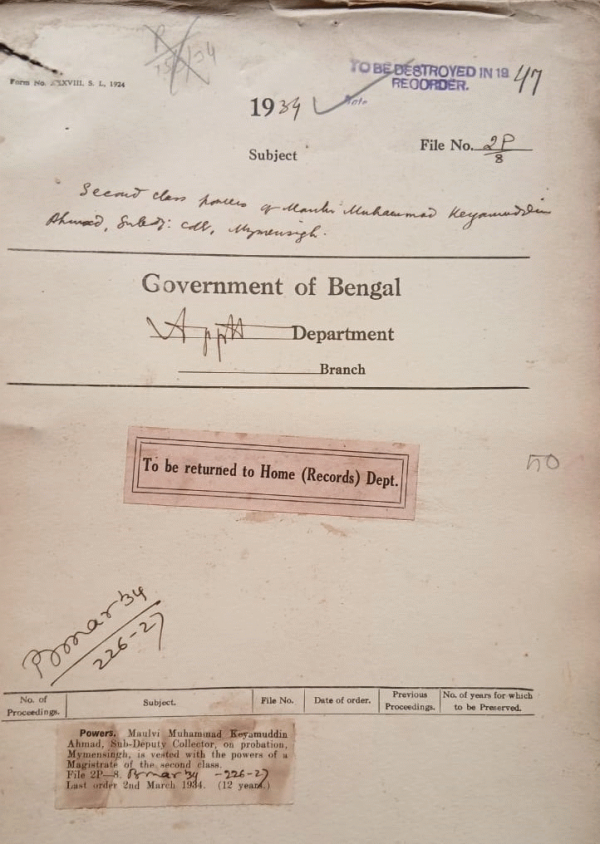 Form No. XXXVIII, S. I., 1924
TO BE DESTROYED IN 19 47
RECORDER.
1934
File No. 2P/8
Subject
Second class powers of Maulvi Muhammad Keyamuddin
Ahmad, Sub Dy. Coll., Mymensingh.
Government of Bengal
Appt Department
Branch
To be returned to Home (Records) Dept.
50
B mar 34
226-27
No. of Proceedings. Subject. File No. Date of order. Previous Proceedings. No. of years for which to be Preserved.
Powers. Maulvi Muhammad Keyamuddin
Ahmad, Sub-Deputy Collector, on probation,
Mymensingh, is vested with the powers of a
Magistrate of the second class.
File 2P—8. B mar 34 -226-27
Last order 2nd March 1934. (12 years.)